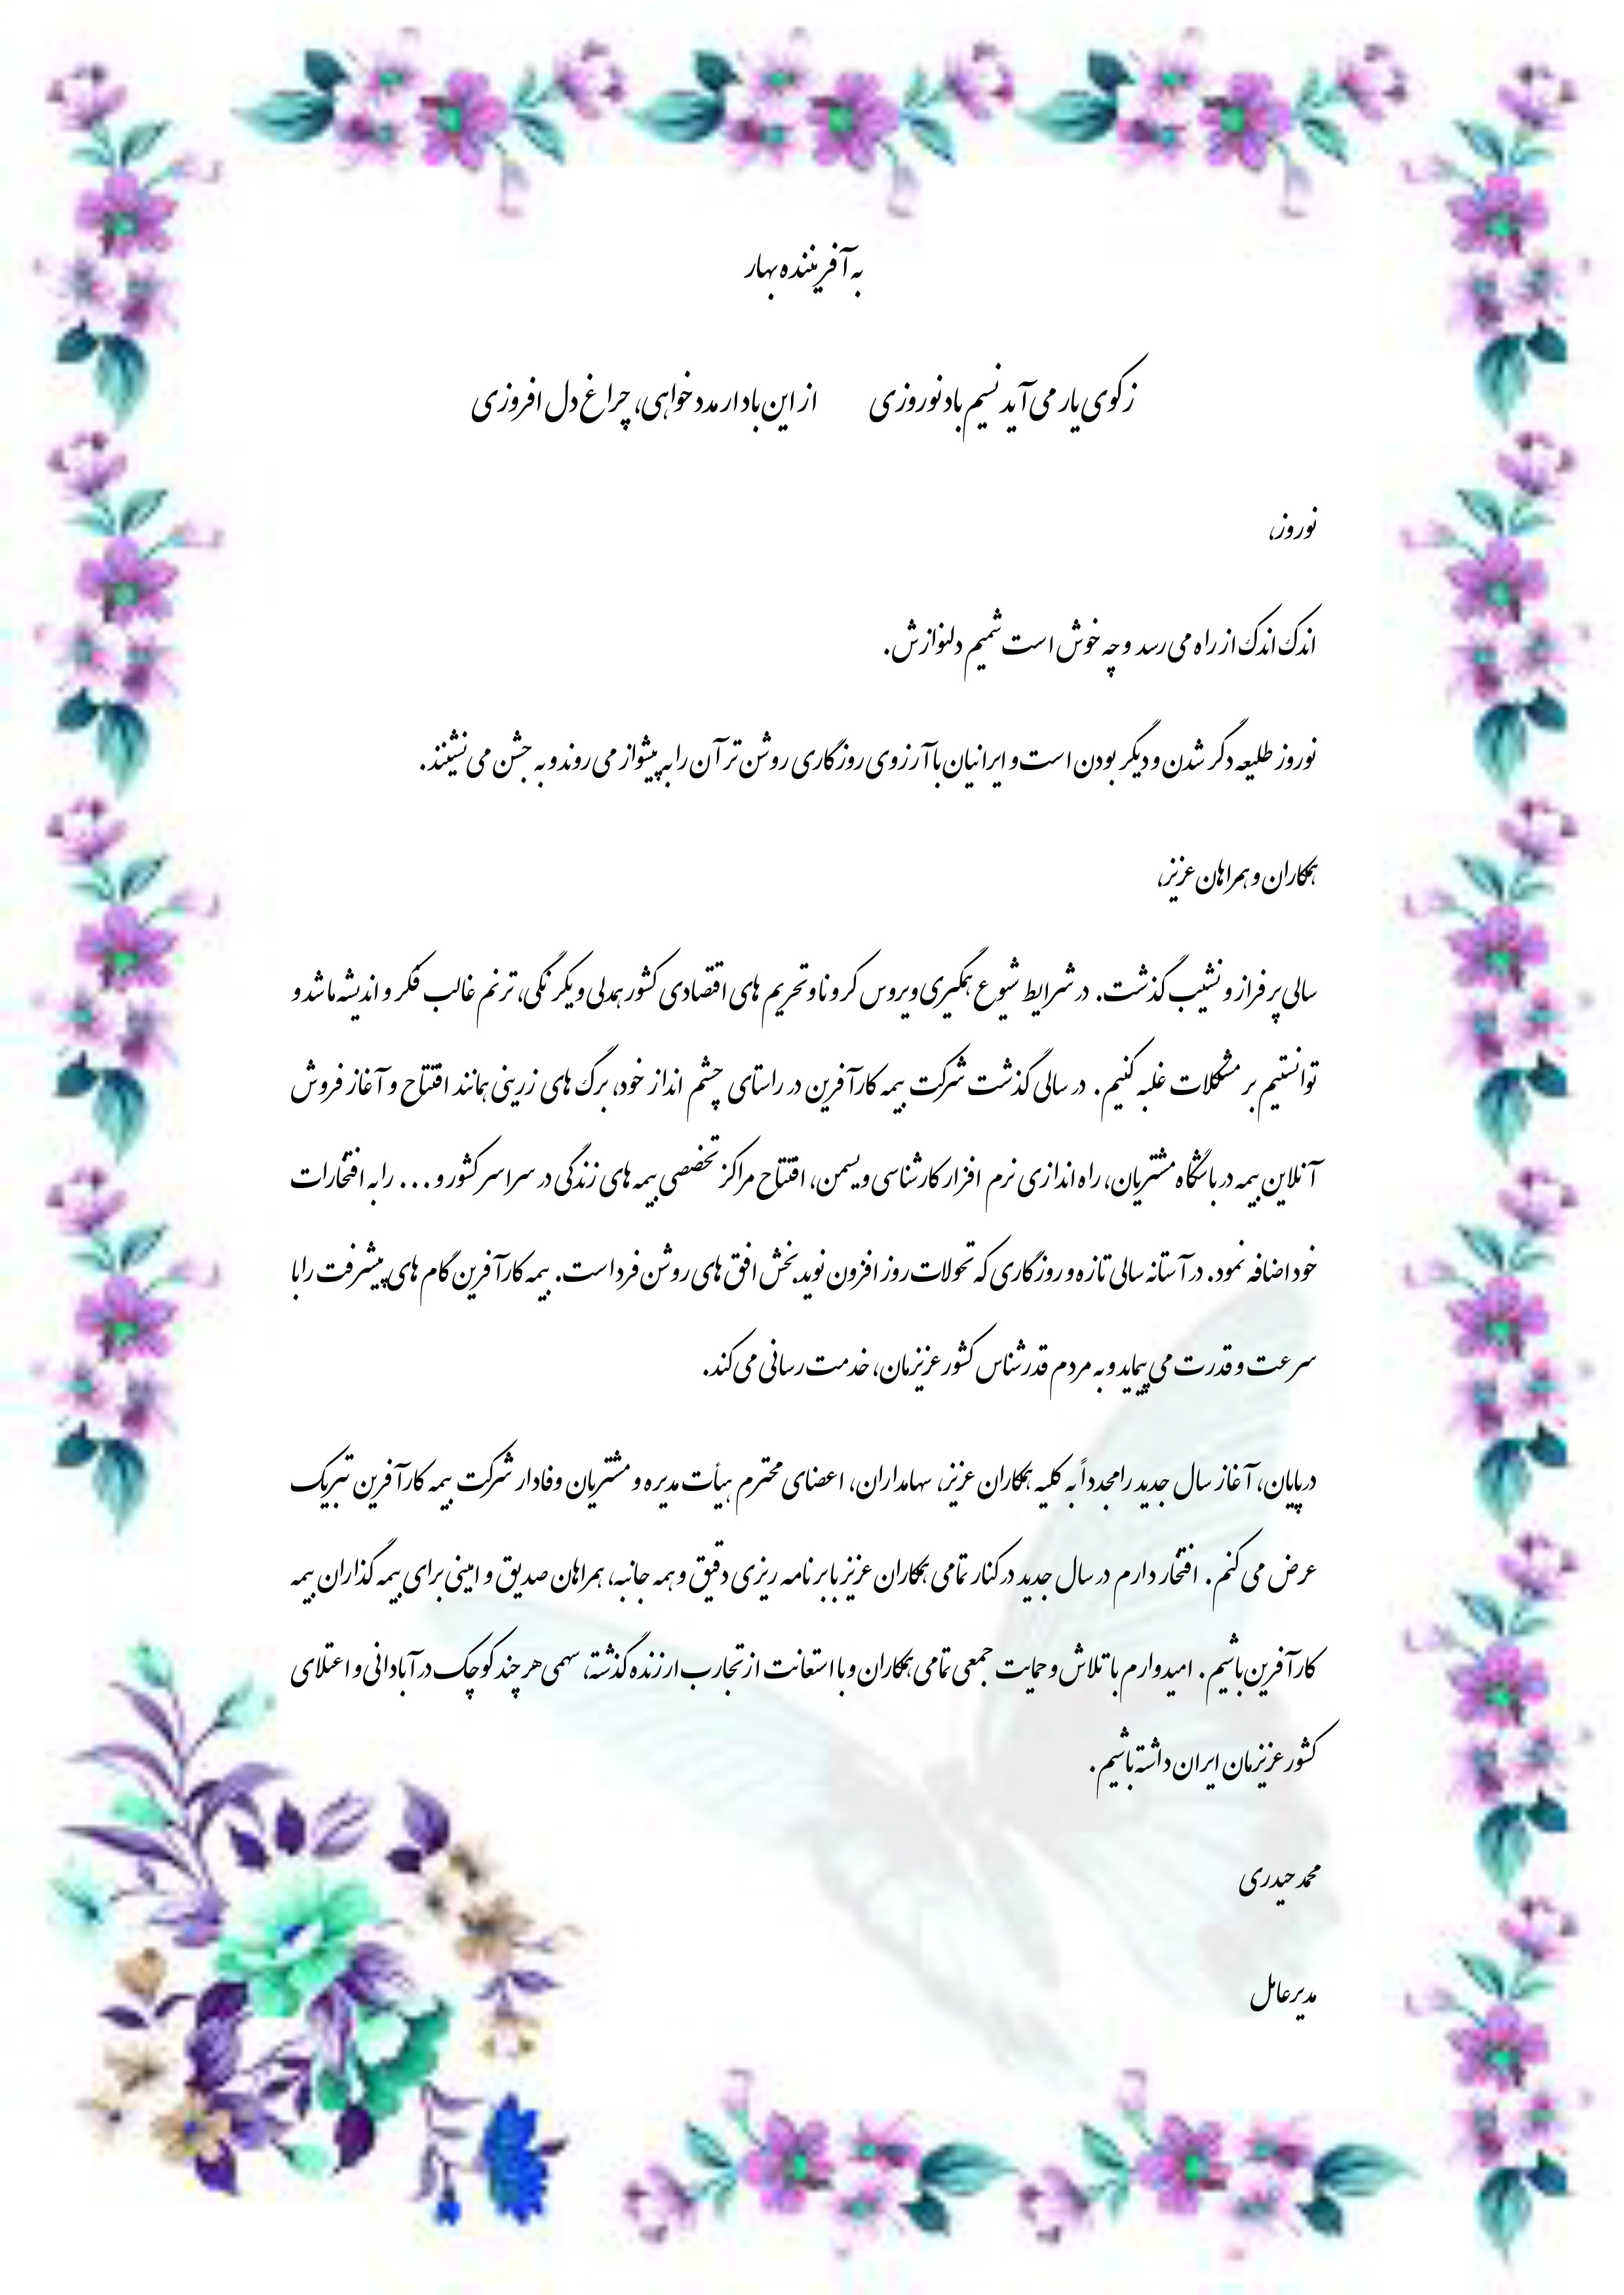 به آفریننده بهار
ز کوی یار می آید نسیم باد نوروزی از این باد ار مدد خواهی، چراغ دل افروزی
نوروز،
اندک اندک از راه می رسد و چه خوش است شمیم دلنوازش.
نوروز طلیعه دگر شدن و دیگر بودن است و ایرانیان با آرزوی روزگاری روشن تر آن را به پیشواز می روند و به جشن می نشینند.
همکاران و همراهان عزیز،
سالی پر فراز و نشیب گذشت. در شرایط شیوع همگیری ویروس کرونا و تحریم های اقتصادی کشور همدلی و یکرنگی، ترنم غالب فکر و اندیشه ما شد و
توانستیم بر مشکلات غلبه کنیم. در سالی گذشت شرکت بیمه کارآفرین در راستای چشم انداز خود، برگ های زرینی همانند افتتاح و آغاز فروش
آنلاین بیمه در باشگاه مشتریان، راه اندازی نرم افزار کارشناسی ویسمن، افتتاح مراکز تخصصی بیمه های زندگی در سراسر کشور و... را به افتخارات
خود اضافه نمود. در آستانه سالی تازه و روزگاری که تحولات روز افزون نویدبخش افق های روشن فرداست. بیمه کارآفرین گام های پیشرفت را با
سرعت و قدرت می پیماید و به مردم قدرشناس کشور عزیزمان، خدمت رسانی می کند.
در پایان، آغاز سال جدید را مجدداً به کلیه همکاران عزیز، سهامداران، اعضای محترم هیأت مدیره و مشتریان وفادار شرکت بیمه کارآفرین تبریک
عرض می کنم. افتخار دارم در سال جدید در کنار تمامی همکاران عزیز با برنامه ریزی دقیق و همه جانبه، همراهان صدیق و امینی برای بیمه گذاران بیمه
کارآفرین باشیم. امیدوارم با تلاش و حمایت جمعی تمامی همکاران و با استعانت از تجارب ارزنده گذشته، سهمی هر چند کوچک در آبادانی و اعتلای
کشور عزیزمان ایران داشته باشیم.
محمد حیدری
مدیرعامل